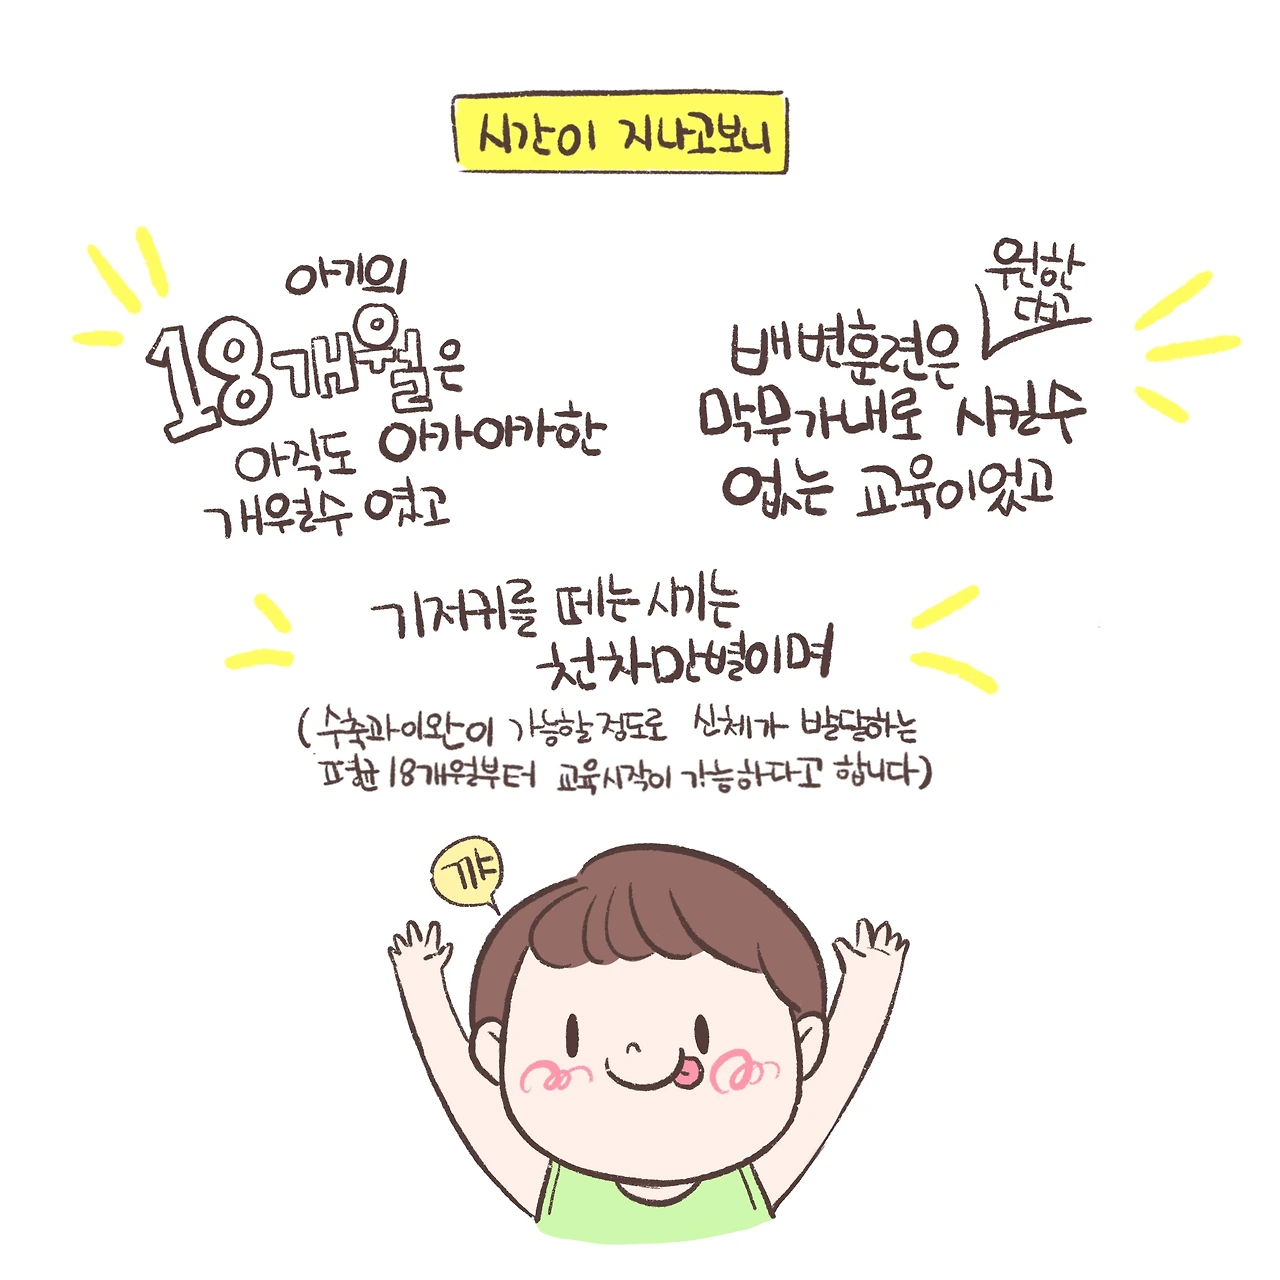 시간이 지나고보니
아기의
18개월은
아직도 아가아가한
개월수 였고
원한
다고
배변훈련은
막무가내로 시킬수
없는 교육이었고
기저귀를 떼는시기는
천차만별이며
(수축과이완이 가능할정도로 신체가 발달하는
평균18개월부터 교육시작이 가능하다고 합니다)
꺄